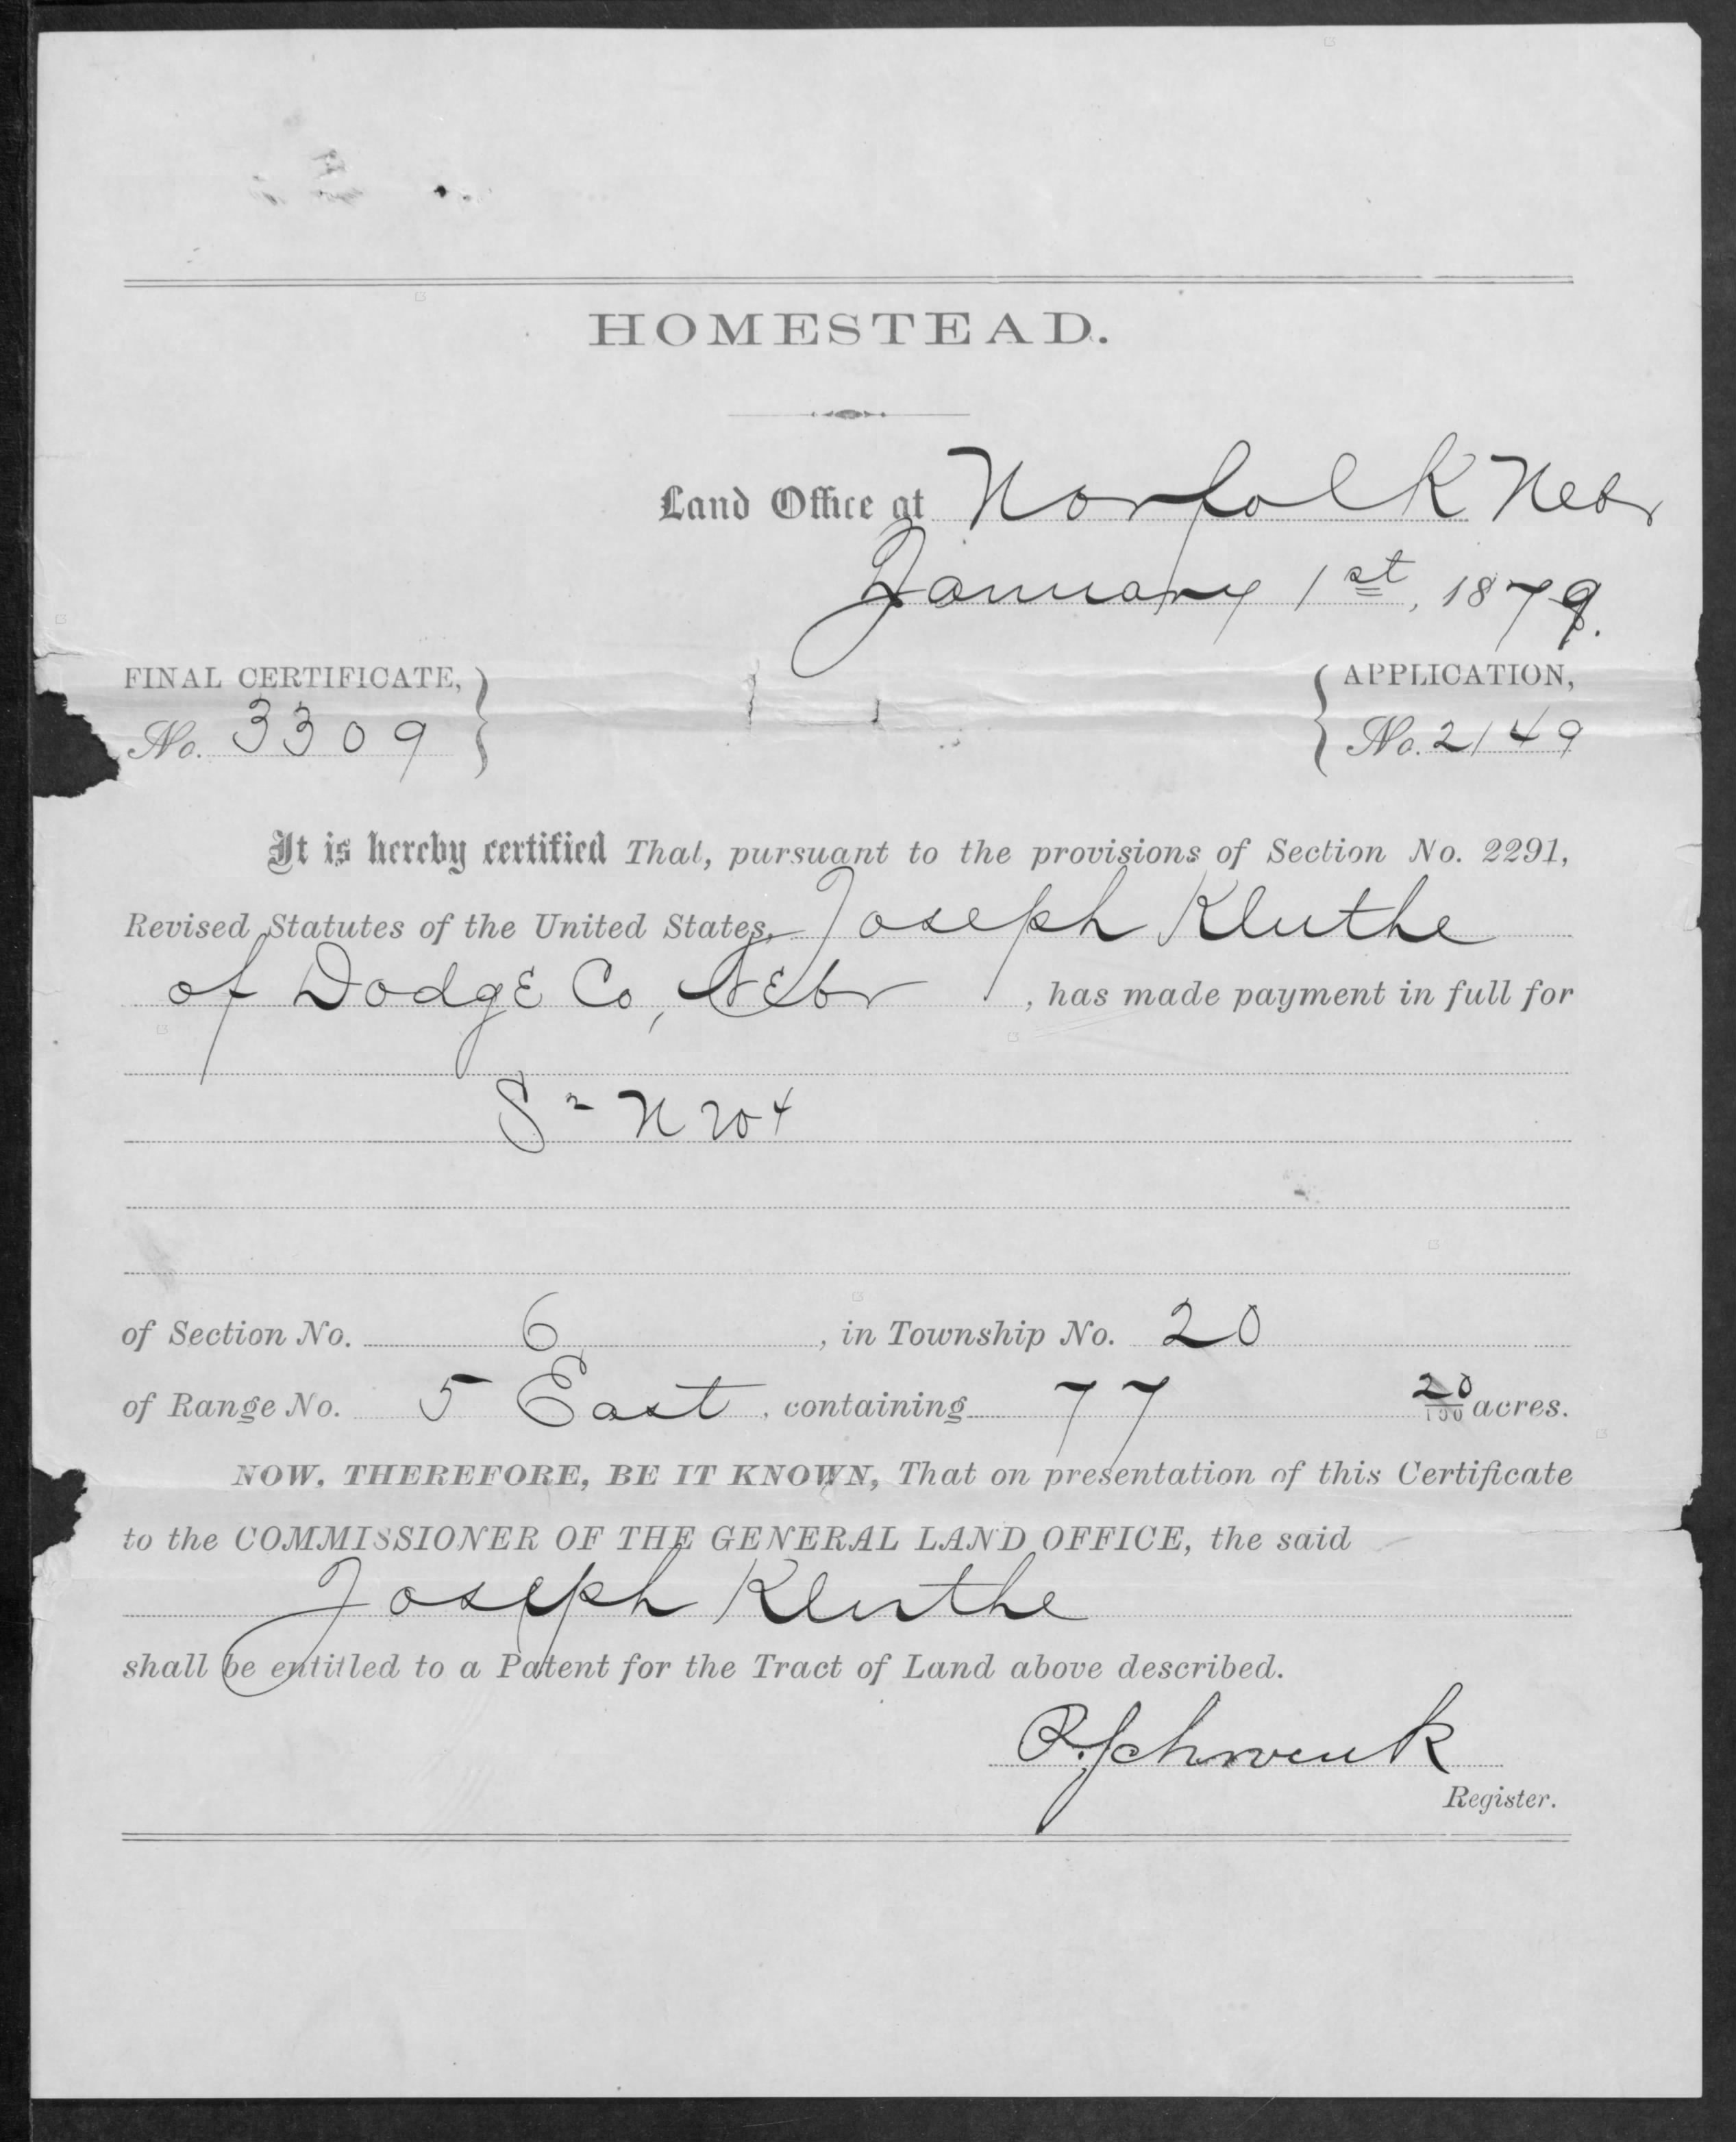 HOMESTEAD.
Land Office at Norfolk Nebr
January 1st, 1879.
FINAL CERTIFICATE, No. 3309
APPLICATION, No. 2149
It is hereby certified That, pursuant to the provisions of Section No. 2291,
Revised Statutes of the United States, Joseph Kluthe
of Dodge Co, Nebr, has made payment in full for
S 2 N W 4
of Section No. 6, in Township No. 20
of Range No. 5 East, containing 77 20/100 acres.
NOW, THEREFORE, BE IT KNOWN, That on presentation of this Certificate
to the COMMISSIONER OF THE GENERAL LAND OFFICE, the said
Joseph Kluthe
shall be entitled to a Patent for the Tract of Land above described.
Schwenk
Register.